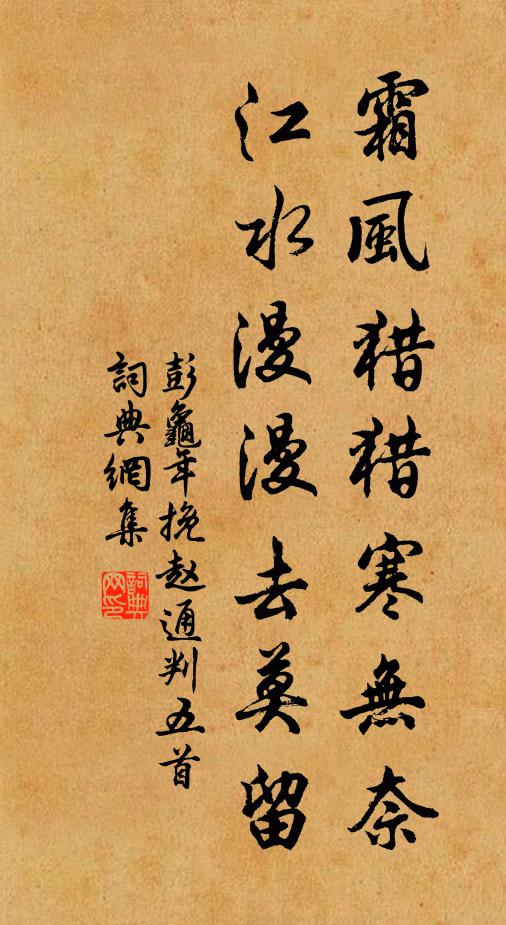 霜風猎猎寒無奈
江水漫漫去莫留
彭龜年挽赵通判五首
詞典網集
詞典网印